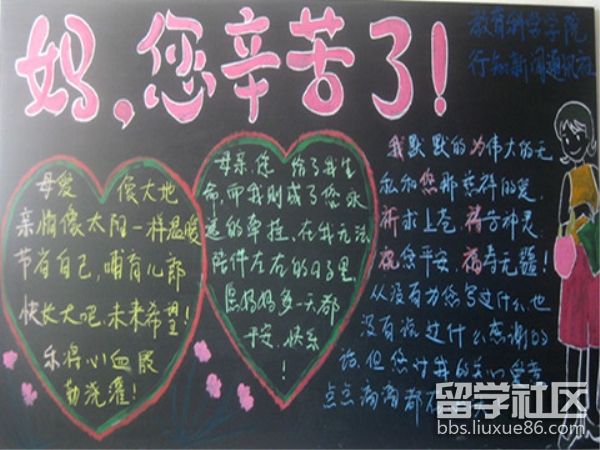 妈,您辛苦了!
教育科学学院
行知新闻通讯社
母爱 像大地
亲情像太阳一样温暖
节省自己,哺育儿郎
快长大吧,未来希望!
乐将心血展
勤浇灌!
母亲,您 给了我生
命,而我则成了您永
远的牵挂,在我无法
陪伴左右的日子里
愿妈妈每一天都
平安、快乐
!
我默默的为伟大的无
私和您那慈祥的爱,
祈求上苍,祷告神灵
祝您平安,福寿无疆!
从没有为您写过什么,也
没有说过什么感谢的
话,但您对我的关心
点点滴滴都在
留学社区
bbs.liuxue86.com